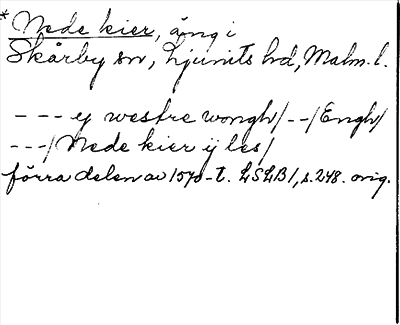 * Nede kier, äng i
Skårby sn, Ljunits hd, Malm. l.
--- ej westre wongh/--/Engh/
---/Nede kier ij les/
förra delen av 1570-t. LSLB 1, s. 248. orig.